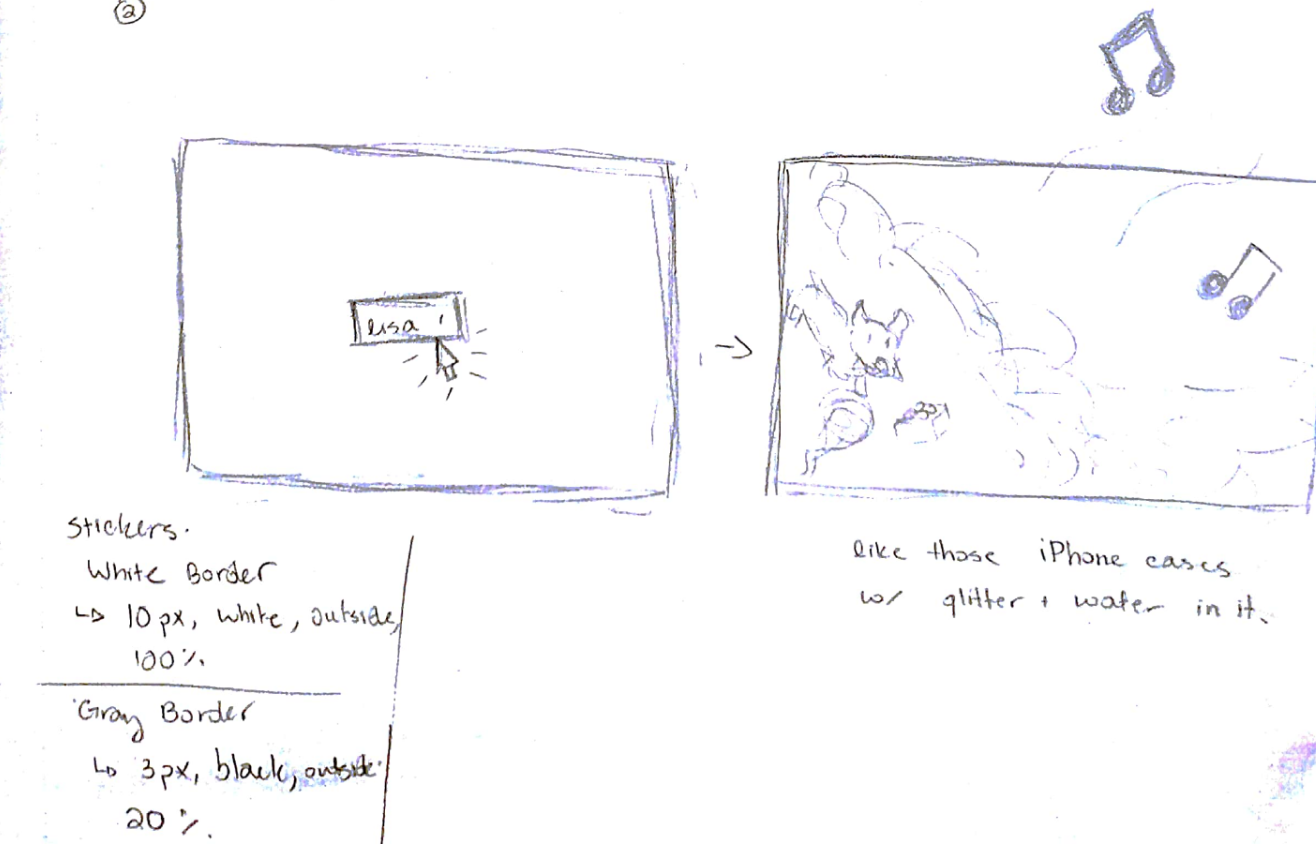 2
lisa
Stickers.
White Border
↳ 10 px, white, outside,
100%
Gray Border
↳ 3px, black, outside
20%.
like those iPhone cases
w/ glitter + water in it.